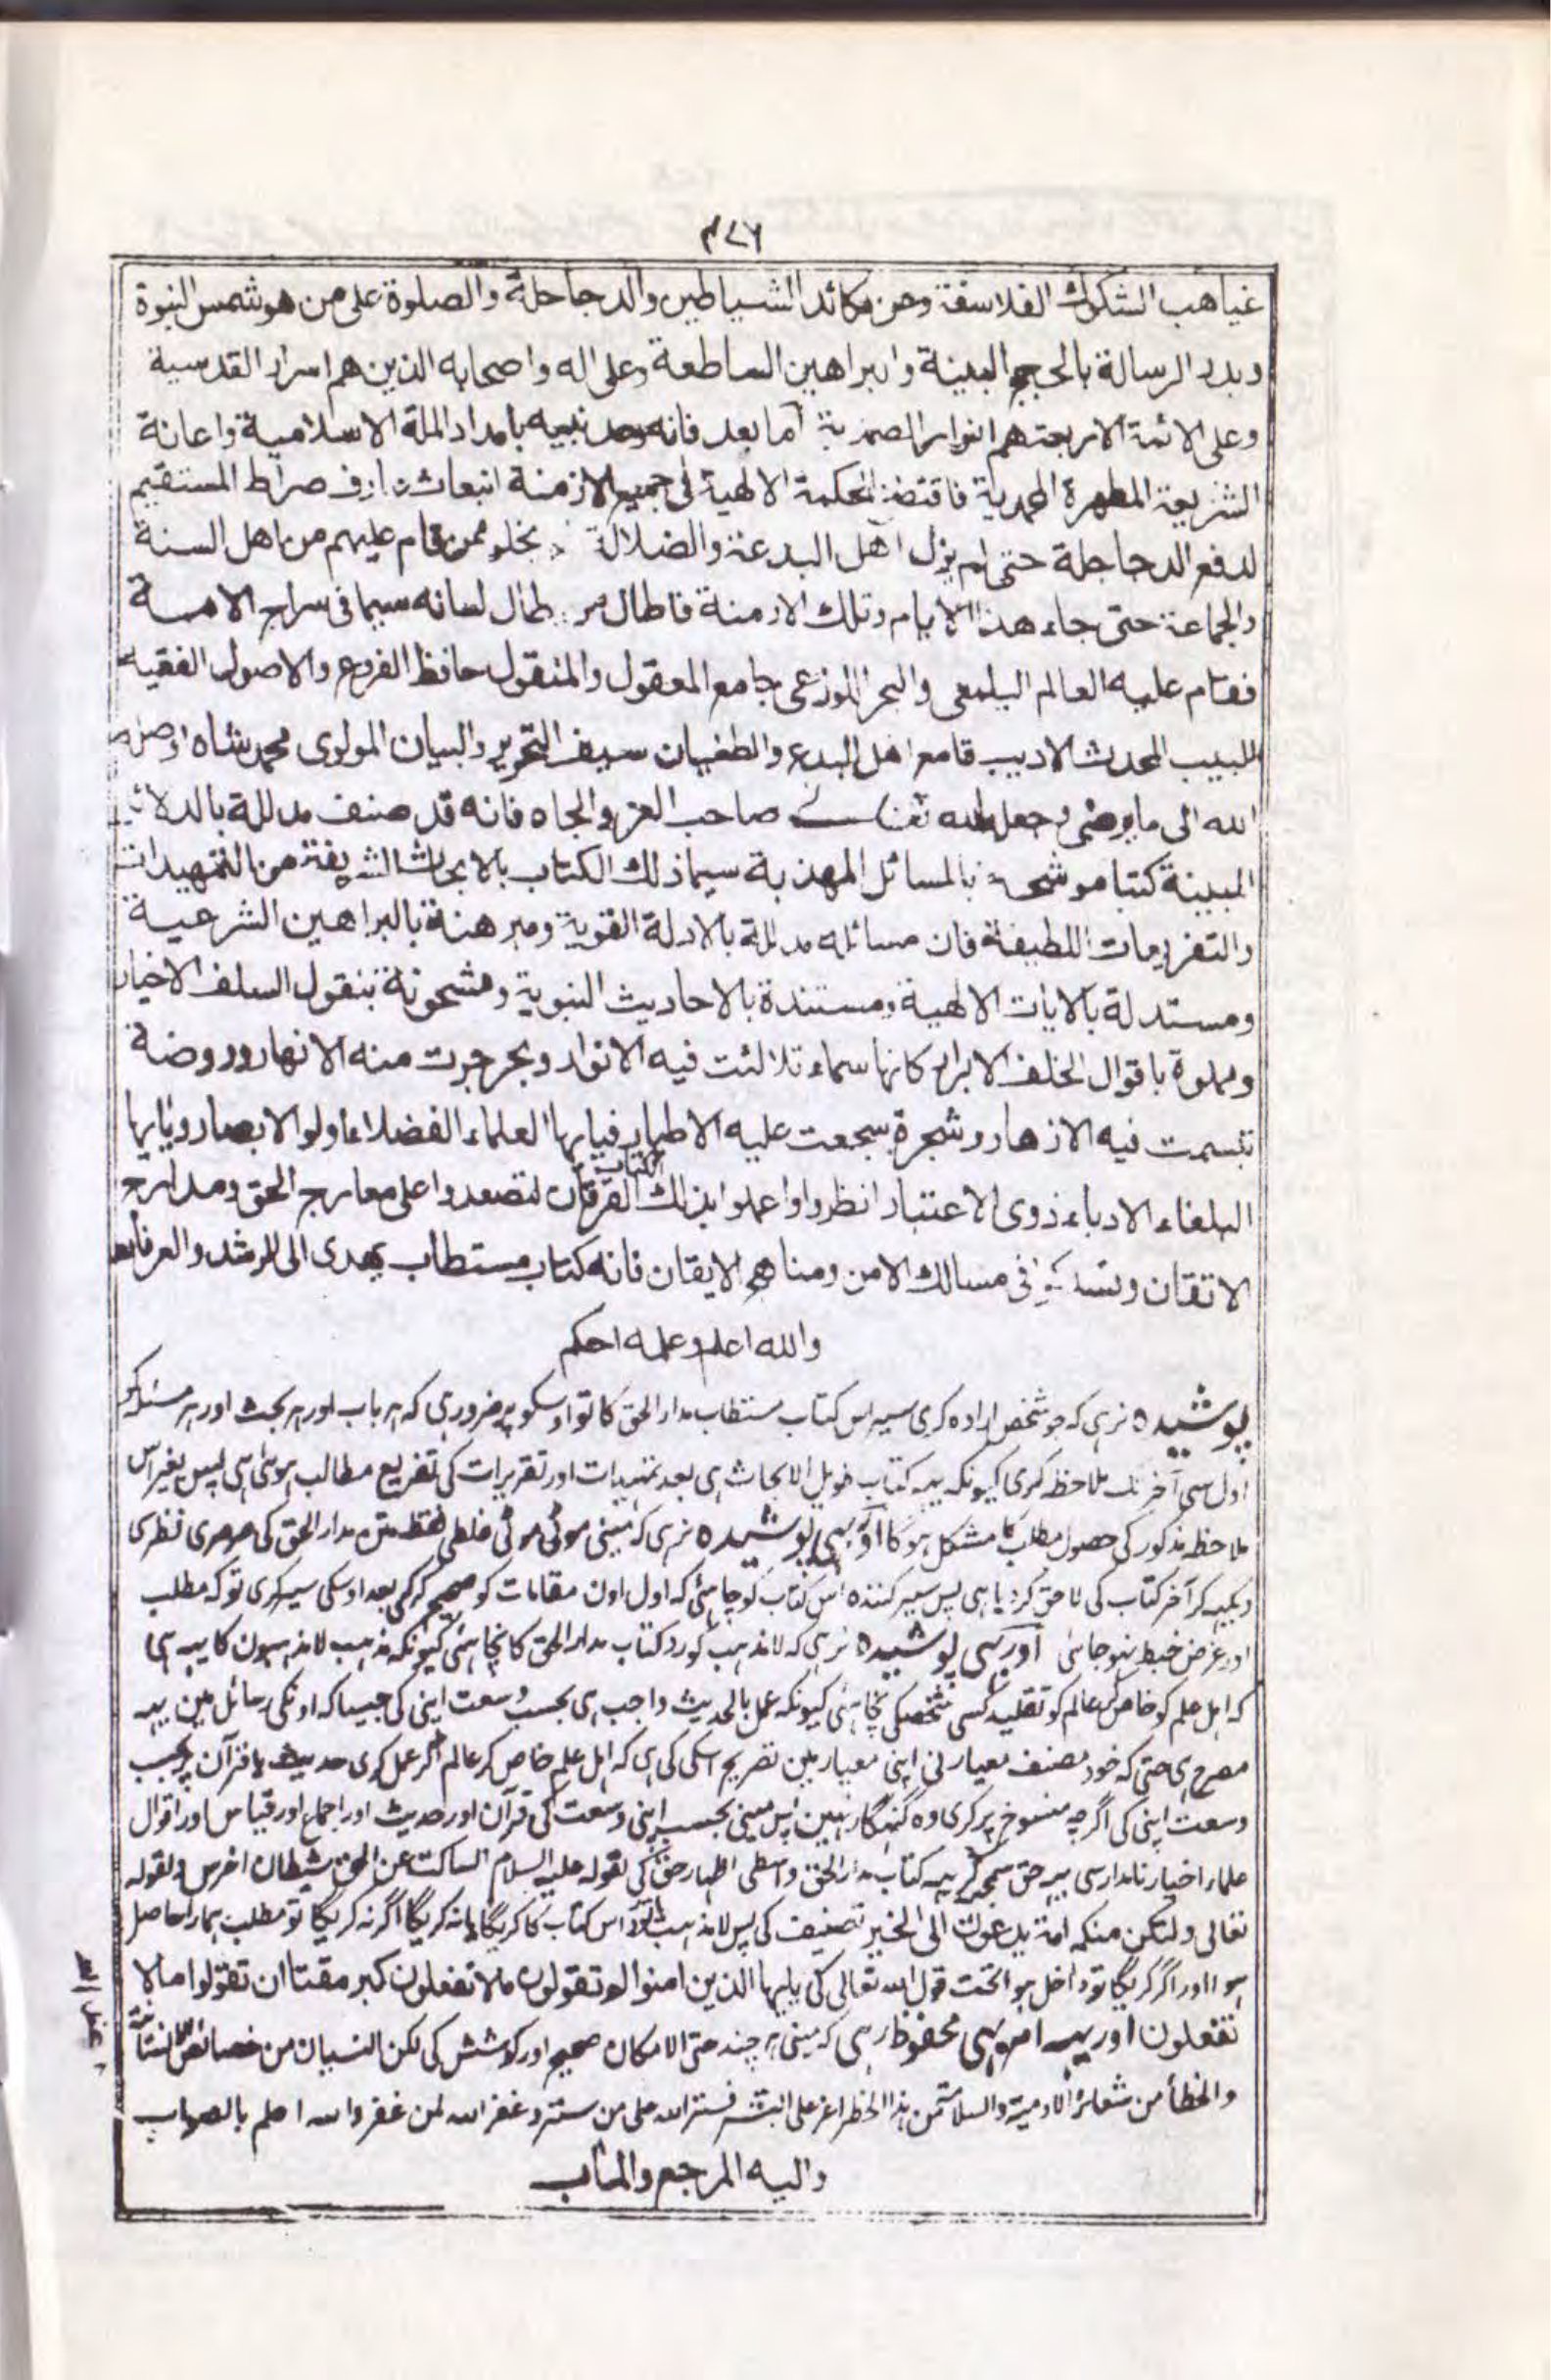 ۴۷۶
غیاهب الشکوك الفلاسفة ومن مکائد الشیاطین والدجاجلة والصلوة علی من هو شمس النبوة
وبدر الرسالة بالحجج المبینة والبراهین الساطعة وعلی اله واصحابه الذین هم اسرار القدسیة
وعلی الائمة الاربعة هم انوار الصمدیة اما بعد فانه وعد نبیه بامداد الملة الاسلامیة واعانة
الشریعة المطهرة المحمدیة فاقتضت الحکمة الالهیة فی جمیع الازمنة انبعاث صراط المستقیم
لدفع الدجاجلة حتی لم یزل اهل البدعة والضلالة یخلو ممن قام علیهم من اهل السنة
والجماعة حتی جاء هذا الایام وتلك الازمنة فاطال من طال لسانه سیما فی سراج الامـــة
فقام علیه العالم الیلمعی والبحر اللوزعی جامع المعقول والمنقول حافظ الفروع والاصول الفقیه
اللبیب المحدث الادیب قامع اهل البدع والطغیان سیف التحریر والبیان المولوی محمد شاه اوصله
الله الی ما یرضی وجعل الله تعالی صاحب العز والجاه فانه قد صنف مدللة بالدلائل
المبینة کتبا موشحة بالمسائل المهذبة سیما ذلك الکتاب بالابحاث الشریفة من التمهیدات
والتفریعات اللطیفة فان مسائله مدللة بالادلة القویة ومبرهنة بالبراهین الشرعیة
ومستدلة بالایات الالهیة ومستندة بالاحادیث النبویة ومشحونة بنقول السلف الاخیار
ومملوة باقوال الخلف الابرار کانها سماء تلالئت فیه الانوار وبحر جرت منه الانهار وروضة
تبسمت فیه الازهار وشجرة سجعت علیه الاطیار فیایها العلماء الفضلاء اولو الابصار ویایها
البلغاء الادباء ذوی الاعتبار انظروا واعملوا بذلك الکتاب الفرقان لتصعدوا علی معارج الحق ومدارج
الاتقان وتسلکوا فی مسالك الامن ومناهج الایقان فانه کتاب مستطاب یهدی الی الرشد والعرفان
والله اعلم وعلمه احکم
پوشیدہ نرہی کہ جو شخص ارادہ کری سیر اس کتاب مستطاب مدار الحق کا تو اوسکو پر ضرور ہی کہ ہر باب اور ہر بحث اور ہر مسئلہ کو
اول سی آخر تک ملاحظہ کری کیونکہ یہہ کتاب طویل الابحاث ہی بعد تمہیدات اور تقریرات کی تفریع مطالب ہوئی ہی پس بغیر اس
ملاحظہ مذکور کی حصول مطلب کا مشکل ہوگا اور یہی پوشیدہ نرہی کہ مینی موٹی موٹی غلطی فقط متن مدار الحق کی سرسری نظر سی
دیکہہ کر آخر کتاب کی لاحق کردیا ہی پس سیر کنندہ اس کتاب کو چاہئی کہ اول اون مقامات کو صحیح کر کی بعد اوسکی سیر کری تو کہ مطلب
اور غرض خبط نہوجائی اور یہی پوشیدہ نرہی کہ لامذہب کو رد کتاب مدار الحق کا نچاہئی کیونکہ مذہب لامذہبون کا یہہ ہی
کہ اہل علم کو خاص کر عالم کو تقلید کسی شخص کی نچاہئی کیونکہ عمل بالحدیث واجب ہی بحسب وسعت اپنی کی جیساکہ اونکی رسائل مین یہہ
مصرح ہی حتی کہ خود مصنف معیار نی اپنی معیار مین تصریح اسکی کی ہی کہ اہل علم خاص کر عالم اگر عمل کری حدیث یا قرآن پر بحسب
وسعت اپنی کی اگرچہ منسوخ پر کری وہ گنہگار نہین پس مینی بحسب اپنی وسعت کی قرآن اور حدیث اور اجماع اور قیاس اور اقوال
علماء اخیار نامدار سی یہہ حق سمجہکر یہہ کتاب مدار الحق واسطی اظہار حق کی لقولہ علیہ السلام الساکت عن الحق شیطان اخرس ولقولہ
تعالی ولتکن منکم امة یدعون الی الخیر تصنیف کی پس لامذہب رد اس کتاب کا کریگا یا نہ کریگا اگر نہ کریگا تو مطلب ہمارا حاصل
ہوا اور اگر کریگا تو داخل ہوا تحت قول اللہ تعالی کی یایها الذین امنوا لم تقولون ما لا تفعلون کبر مقتا ان تقولوا ما لا
تفعلون اور یہہ امر بہی محفوظ رہی کہ مینی ہر چند حتی الامکان صحیح اور کوشش کی لکن النسیان من خصائص الانسانیة
والخطأ من شعائر الادمیة والسلامة من ہذا الخطر اعز علی البشر فستر اللہ علی من ستر وغفر اللہ لمن غفر واللہ اعلم بالصواب
والیه المرجع والمـاٰب